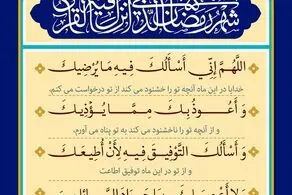 شهر رمضان الذی انزل فیه القرآن
اَللّهُمَّ اِنّي اَسْأَلُكَ فيهِ مَا يُرْضيكَ
خدایا در این ماه آنچه تو را خشنود می کند از تو درخواست می کنم،
وَ اَعُوذُ بِكَ مِمَّا يُؤْذيكَ
و از آنچه تو را ناخشنود می کند به تو پناه می آورم،
وَ اَسْأَلُكَ التَّوْفيقَ فيهِ لِأَنْ اُطيعَكَ
و از تو در این ماه توفیق اطاعت